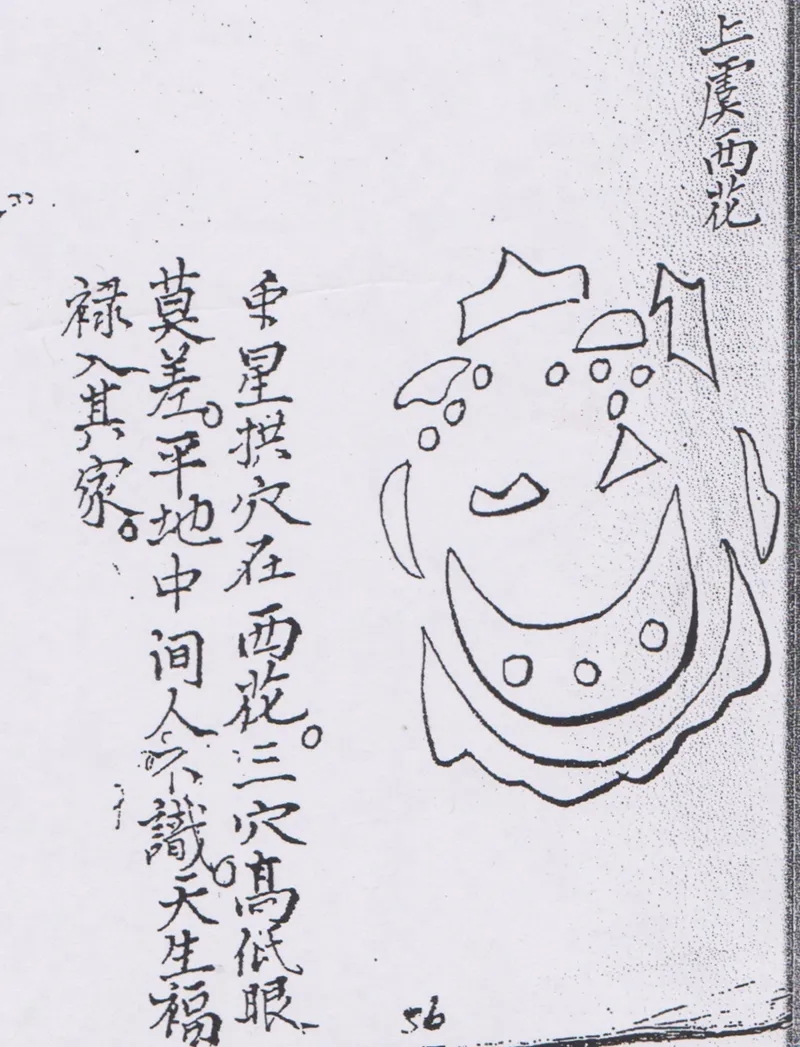 上虞西花
星拱穴在西花。三穴高低眼
莫差。平地中间人不識。天生福
禄入其家。
56